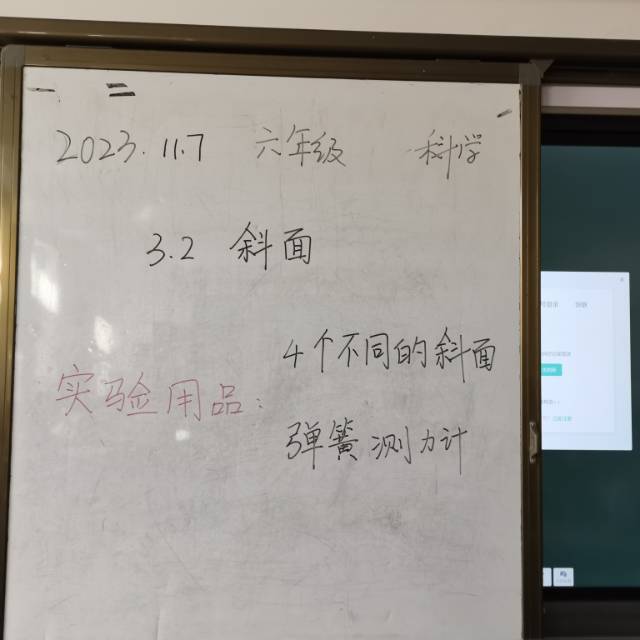 一 二
2023.11.7 六年级 科学
3.2 斜面
4个不同的斜面
实验用品：
弹簧测力计